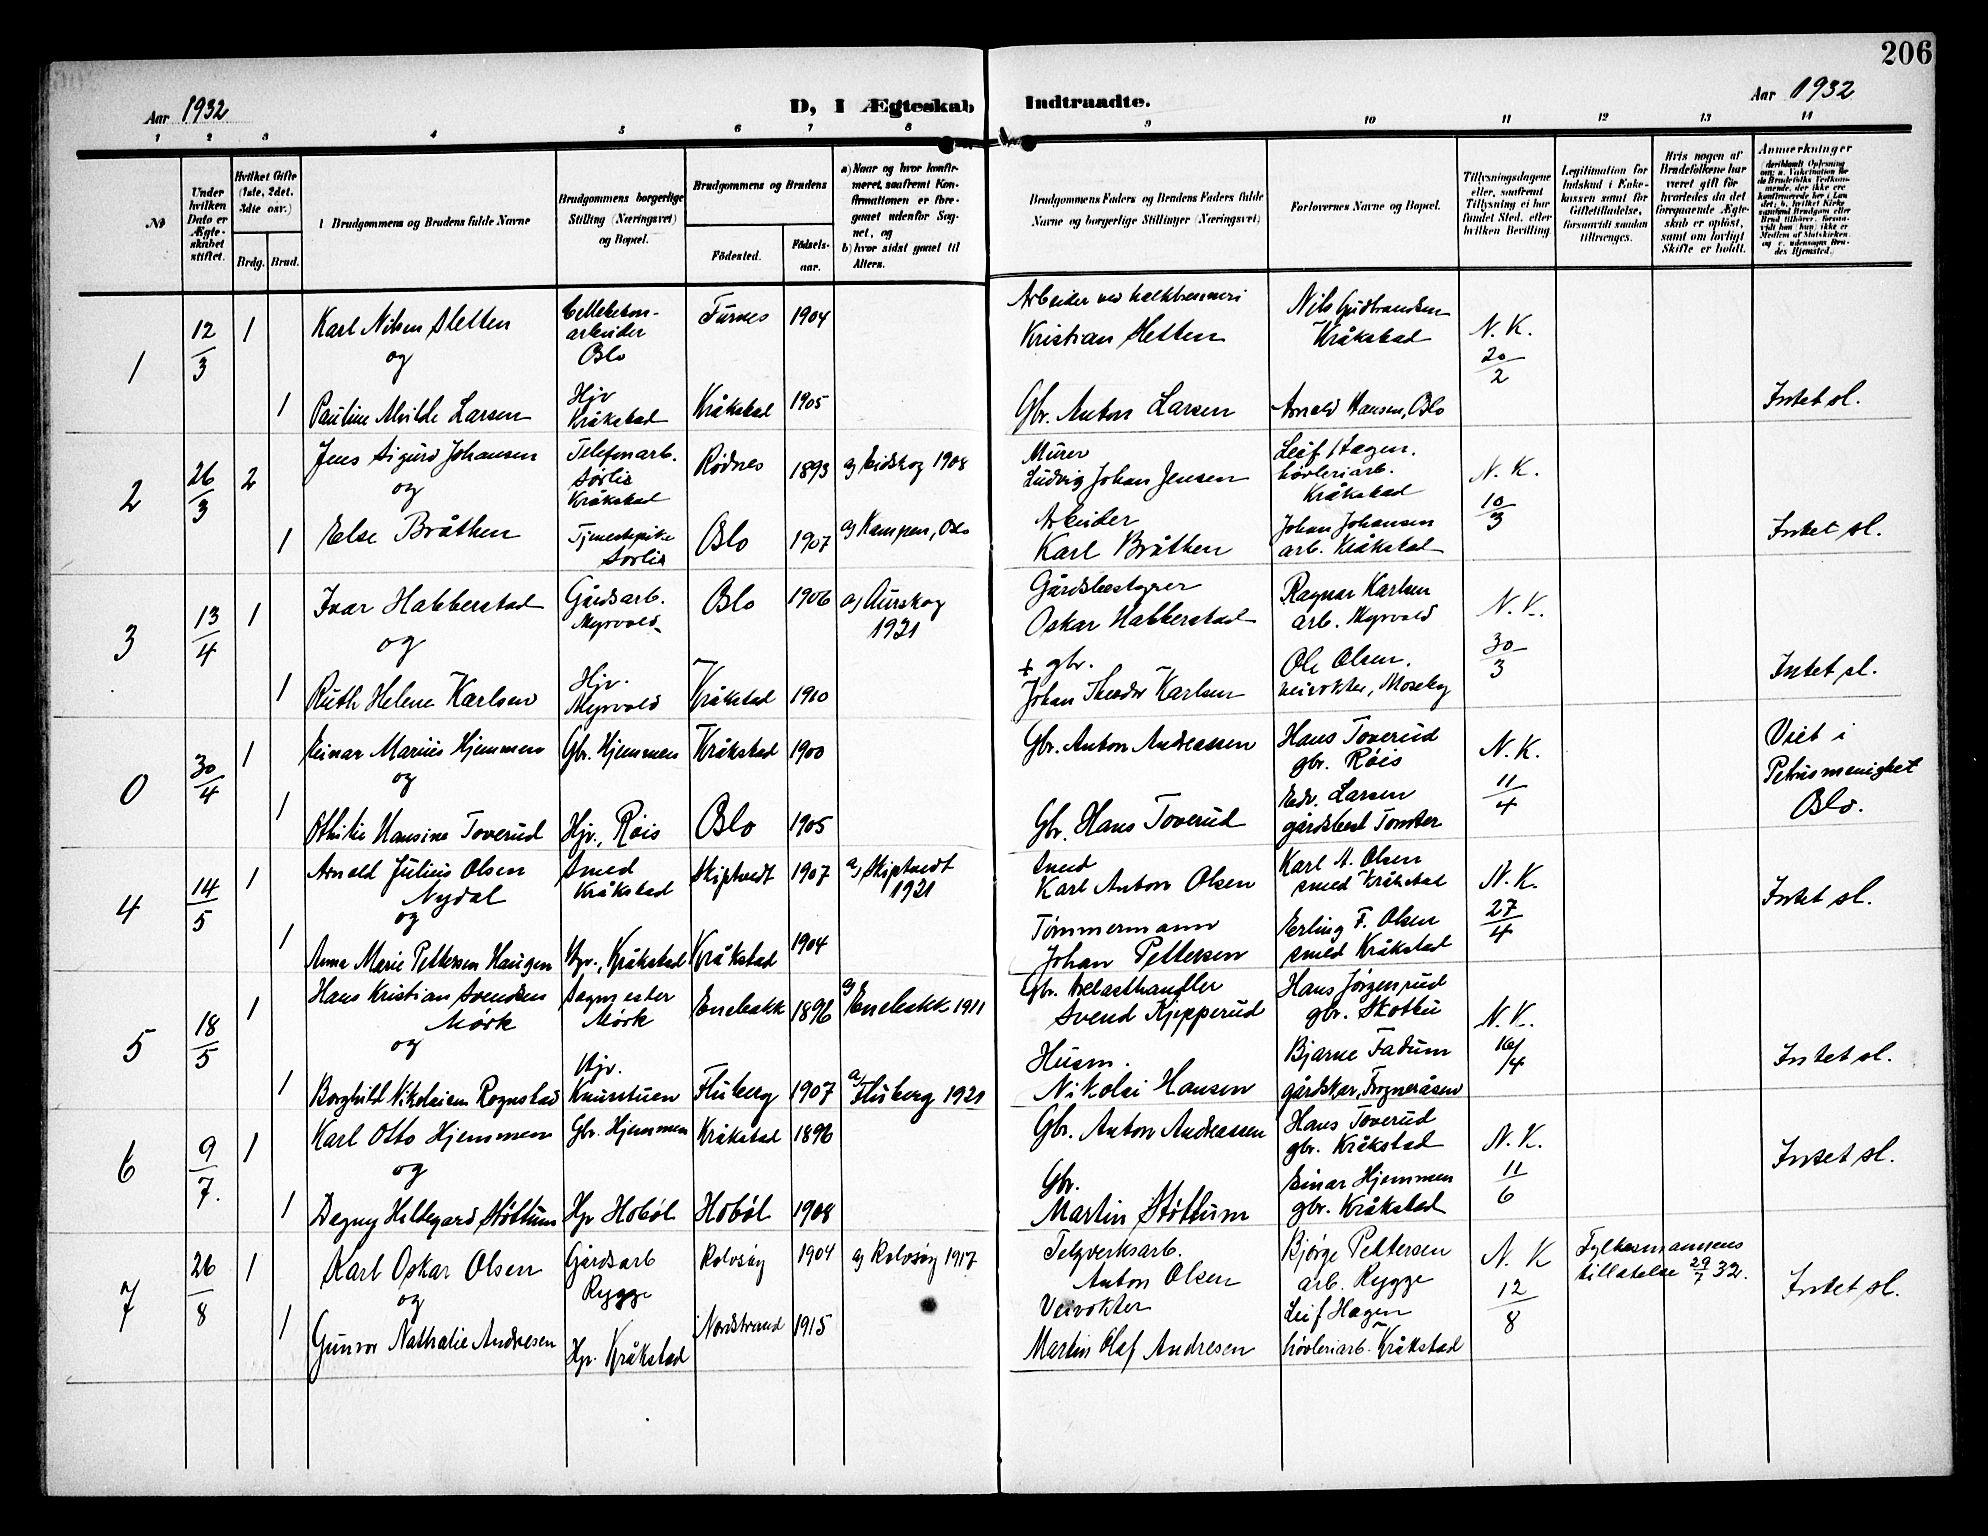 206
Aar 1932
D, I Ægteskab Indtraadte.
Aar 1932
1 2 3 4 5 6 7 8 9 10 11 12 13 14
No
Under hvilken Dato er Ægteskabet stiftet.
Hvilket Gifte (1ste, 2det, 3die osv.)
Brdg. Brud.
Brudgommens og Brudens fulde Navne
Brudgommens borgerlige Stilling (Næringsvei) og Bopæl.
Brudgommens og Brudens
Födested. Födselsaar.
a) Naar og hvor konfirmeret, saafremt Konfirmationen er foregaaet udenfor Sognet, og
b) hvor sidst gaaet til Alters.
Brudgommens Faders og Brudens Faders fulde Navne og borgerlige Stillinger (Næringsvei)
Forlovernes Navne og Bopæl.
Tillysningsdagene eller, saafremt Tillysning ei har fundet Sted, efter hvilken Bevilling.
Legitimation for Indskud i Enkekassen samt for Giftetilladelse, forsaavidt saadan tiltrænges.
Hvis nogen af Brudefolkene har været gift för hvorledes da det foregaaende Ægteskab er oplöst, samt om lovligt Skifte er holdt.
Anmerkninger
1 12/3 1 Karl Nilsen Sletten
og
arbeider
Oslo
Furnes 1904
Arbeider ved kalkbrenneri
Kristian Sletten
Nils Gudbrandsen
Kråkstad
N. K.
20/2
1 Pauline Alvilde Larsen
Hjv
Kråkstad
Kråkstad 1905
Gbr. Anton Larsen
Arnold Hansen, Oslo
Intet sl.
2 26/3 2 Jens Sigurd Johansen
og
Telefonarb.
Sörlie
Kråkstad
Rödnes 1893 a) Eidskog 1908
Murer
Ludvig Johan Jensen
Leif Hagen.
hövleriarb.
Kråkstad
N. K.
10/3
1 Else Bråthen
Tjenestepike
Sörlie
Oslo 1907 a) Kampen, Oslo
Arbeider
Karl Bråthen
Johan Johansen
arb. Kråkstad
Intet sl.
3 13/4 1 Ivar Habberstad
og
Gårdsarb.
Myrvold
Oslo 1906 a) Aurskog
1921
Gårdsbestyrer
Oskar Habberstad
Ragnar Karlsen
arb. Myrvold
N. K.
30/3
1 Ruth Helene Karlsen
Hjv.
Myrvold
Kråkstad 1910
+ gbr.
Johan Theodor Karlsen
Ole Olsen.
veivokter, Moseby
Intet sl.
0 30/4 1 Einar Marius Hjemmen
og
Gbr. Hjemmen
Kråkstad 1900
Gbr. Anton Andreassen
Hans Toverud
gbr. Röis
N. K.
11/4
Viet i
Petrusmenighet
Oslo.
1 Othilie Hansine Toverud
Hjv., Röis
Oslo 1905
Gbr. Hans Toverud
Edv. Larsen
gårdsbest Tomter
4 14/5 1 Arnold Julius Olsen
Nydal
og
Smed
Kråkstad
Skiptvedt 1907 a) Skiptvedt
1921
Smed
Karl Anton Olsen
Karl A. Olsen
smed Kråkstad
N. K.
27/4
Intet sl.
1 Anna Marie Pettersen Haugen
Hjv., Kråkstad
Kråkstad 1904
Tömmermann
Johan Pettersen
Erling F. Olsen
smed Kråkstad
5 18/5 1 Hans Kristian Svendsen
Mörk
og
Sagmester
Mörk
Enebakk 1896 a) Enebakk 1911
Gbr.
Svend Kjepperud
Hans Jörgenrud
gbr. Skottu
N. K.
16/4
1 Borghild Nikolaisen Rognstad
Hjv.
Knurstuen
Fluberg 1907 a) Fluberg 1921
Husm.
Nikolai Hansen
Bjarne Fadum
gårdskar, Frogneråsen
Intet sl.
6 9/7. 1 Karl Otto Hjemmen
og
Gbr. Hjemmen
Kråkstad 1896
Gbr. Anton Andreassen
Hans Toverud
gbr. Kråkstad
N. K.
11/6
Intet sl.
1 Dagny Hildegard Støttum
Hjv Hoböl
Hoböl 1908
Gbr.
Martin Støttum
Einar Hjemmen
gbr. Kråkstad
7 26/8 1 Karl Oskar Olsen
og
Gårdsarb
Rygge
Rolvsöy 1904 a) Rolvsöy 1917
Teglverksarb.
Anton Olsen
Bjørge Pettersen
arb. Rygge
N. K
12/8
Fylkesmannens
tillatelse 29/7 32.
Intet sl.
1 Gunvor Nathalie Andresen
Hjv. Kråkstad
Nordstrand 1915
Veivokter
Martin Olaf Andresen
Leif Hagen
hövleriarb. Kråkstad